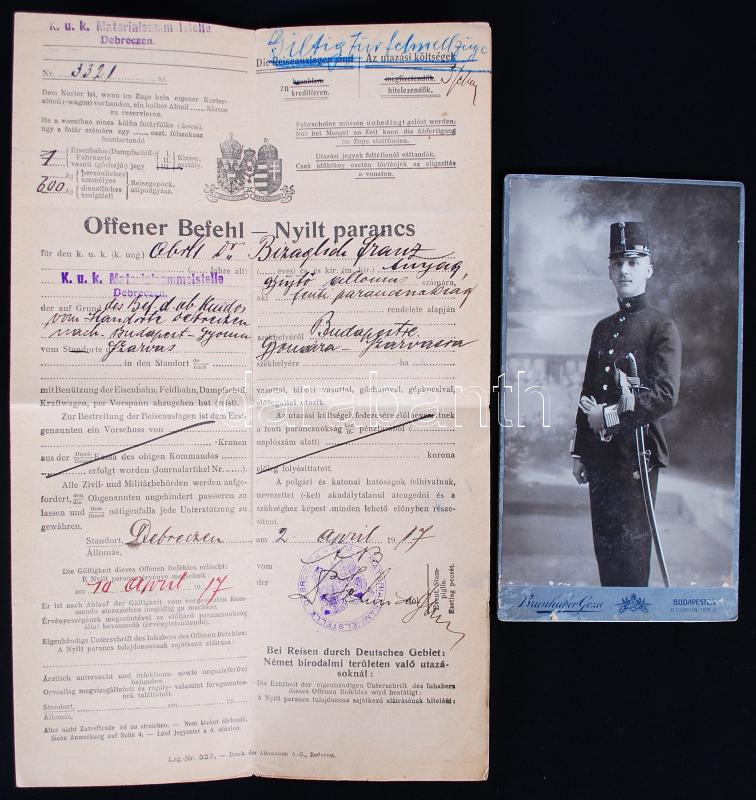 K. u. k. Materialsammelstelle
Debreczen.
Nr. 3321 sz.
Giltig für Schnellzüge
Die Reiseauslagen sind
Az utazási költségek
zu
kreditieren.
megfizetendők.
hitelezendők.
Dem Kurier ist, wenn im Zuge kein eigener Kurier-
abteil (-wagen) vorhanden, ein halber Abteil ...... Klasse
zu reservieren.
Ha a vonatban nincs külön futárfülke (-kocsi),
úgy a futár számára egy ...... oszt. félszakasz
fenntartandó
Fahrscheine müssen unbedingt gelöst werden.
Nur bei Mangel an Zeit kann die Abfertigung
im Zuge stattfinden.
Utazási jegyek feltétlenül váltandók.
Csak időhiány esetén történjék az eligazítás
a vonaton.
1 Eisenbahn-(Dampfschiff-)
Fahrkarte
vasúti (gőzhajó-) jegy
Klasse.
osztály.
600 kg
persönliches
személyes
dienstliches
szolgálati
Reisegepäck.
útipodgyász.
Offener Befehl — Nyilt parancs
für den k. u. k. (k. ung) Oblt Dr. Bizaglich Franz
(......... Jahre alt)
(......... éves) cs és kir. (m. kir.)
K. u. k. Materialsammelstelle
Debreczen.
anyag
gyüjtő állomás számára,
aki fenti parancsnokság
der auf Grund des Bef. d. ob. Kmdos
rendelete alapján
vom Standorte Debreczen
nach Budapest-Gyoma
székhelyéről Budapestre
vom Standorte Szarvas
Gyomára - Szarvasra
in den Standort
székhelyére ............-ba
mit Benützung der Eisenbahn, Feldbahn, Dampfschiff,
Kraftwagen, per Vorspann abzugehen hat (reist).
vasúttal, tábori vasúttal, gőzhajóval, gépkocsival,
előfogattal utazik.
Zur Bestreitung der Reiseauslagen ist dem Erst-
genannten ein Vorschuss von
-Kronen
aus der Kassa des obigen Kommandos
erfolgt worden (Journalartikel Nr. ......).
Az utazási költségek fedezésére előlnevezettnek
a fenti parancsnokság pénztárából (
naplószám alatt)
korona
előleg folyósíttatott.
Alle Zivil- und Militärbehörden werden aufge-
fordert, den Obgenannten ungehindert passieren zu
lassen und ihm nötigenfalls jede Unterstützung zu
gewähren.
A polgári és katonai hatóságok felhivatnak,
nevezettet (-ket) akadálytalanul átengedni és a
szükséghez képest minden lehető előnyben része-
síteni.
Standort, Debreczen
Állomás,
am 2 April 1917
Die Gültigkeit dieses Offenen Befehles erlischt:
E Nyilt parancs érvénye megszűnik
am 10 April 1917
vom
der
Er ist nach Ablauf der Gültigkeit vom vorgesetzten Kom-
mando einzusehen (ungültig zu machen).
Érvényességének megszüntével az előljáró parancsnokság
által bevonandó (érvénytelenítendő).
Event. Stam-
piglie.
Esetleg pecsét.
Eigenhändige Unterschrift des Inhabers des Offenen Befehles:
A Nyilt parancs tulajdonosának sajátkezű aláírása:
Bei Reisen durch Deutsches Gebiet:
Német birodalmi területen való utazá-
soknál:
Ärztlich untersucht und infektions- sowie ungezieferfrei
befunden.
Orvosilag megvizsgáltatott és ragály- valamint féregmentes-
nek találtatott.
Die Echtheit der eigenhändigen Unterschrift des Inhabers
dieses Offenen Befehles wird bestätigt:
A Nyilt parancs tulajdonosa sajátkezű aláírásának hiteléül:
Standort,
Állomás,
am 19
Alles nicht Zutreffende ist zu streichen. — Nem kívánt törlendő.
Siehe Anmerkung auf Seite 4. — Lásd Jegyzetet a 4. oldalon.
Lag.-Nr. 527. — Druck der Athenaeum A.-G., Budapest.
darabanth
Brunhuber Géza
BUDAPESTEN
II CORVIN TÉR 3